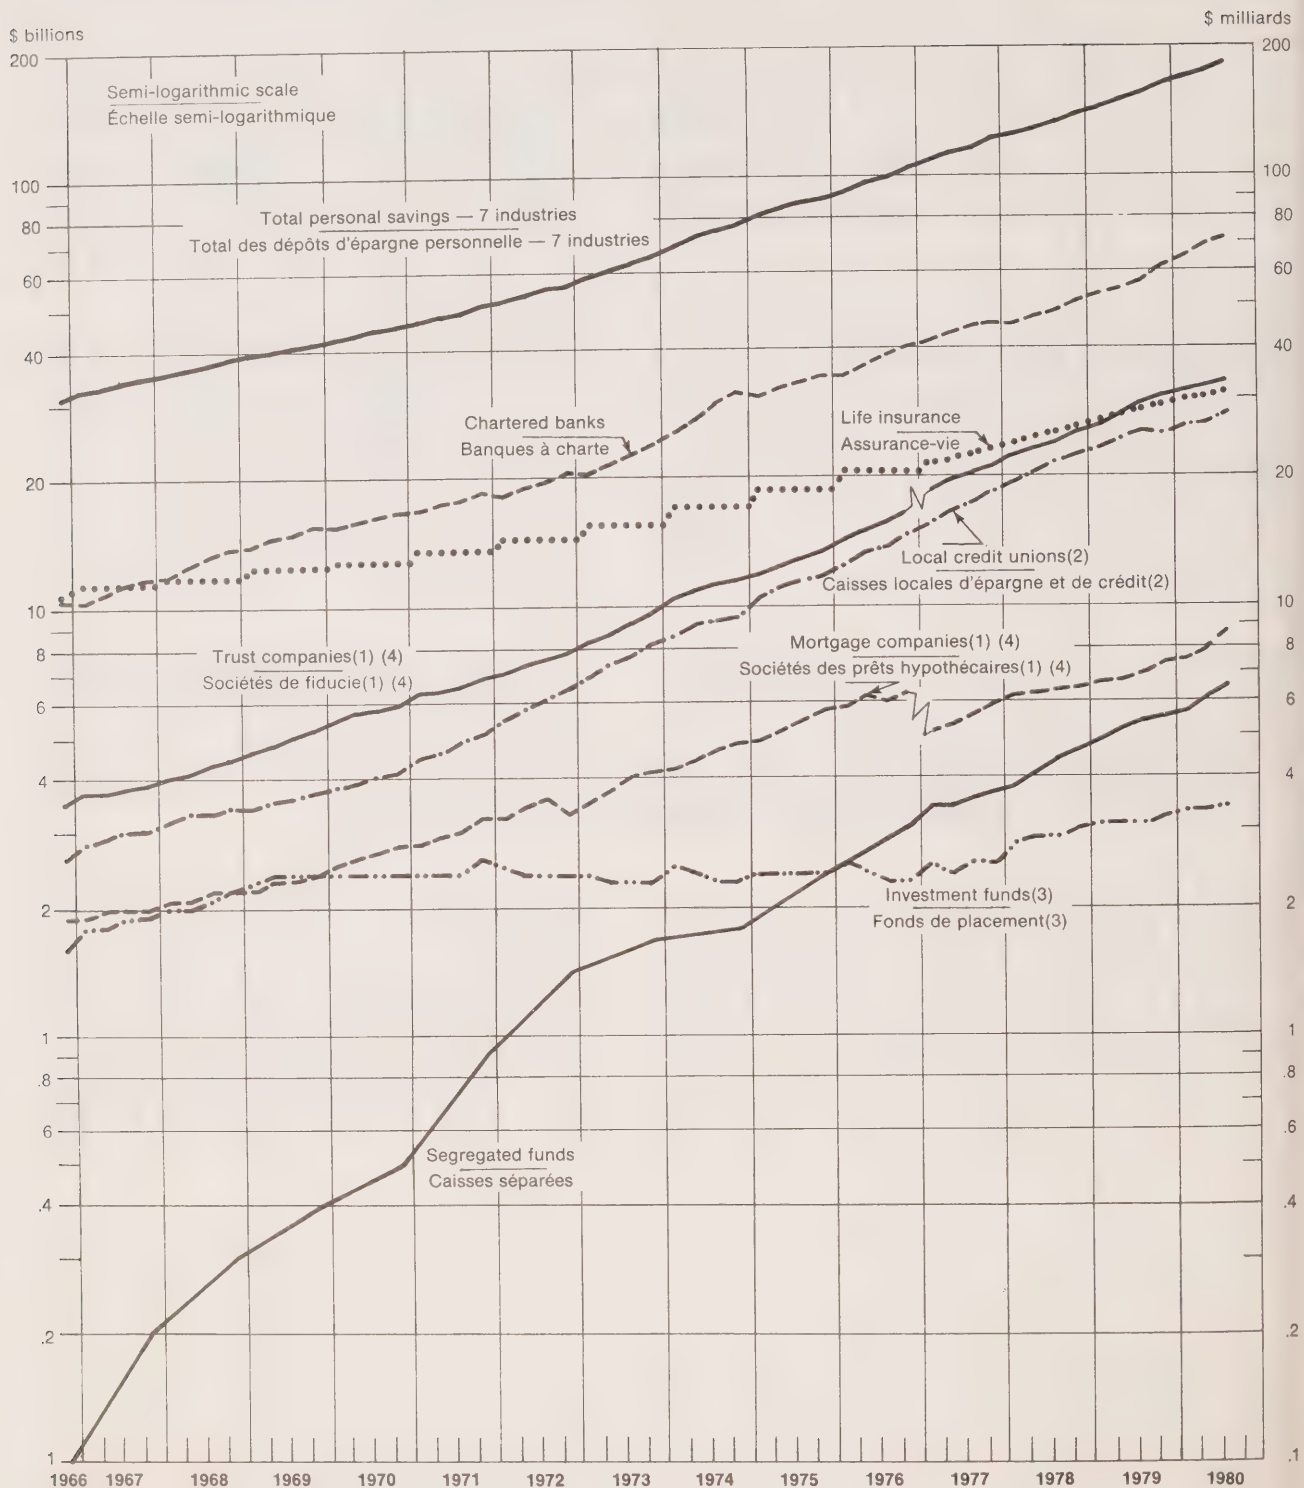 $ billions
$ milliards
200
200
Semi-logarithmic scale
Échelle semi-logarithmique
100
100
Total personal savings — 7 industries
80
80
Total des dépôts d'épargne personnelle — 7 industries
60
60
40
40
Chartered banks
Banques à charte
Life insurance
Assurance-vie
20
20
Local credit unions(2)
Caisses locales d'épargne et de crédit(2)
10
10
8
8
Trust companies(1) (4)
Sociétés de fiducie(1) (4)
Mortgage companies(1) (4)
Sociétés des prêts hypothécaires(1) (4)
6
6
4
4
2
2
Investment funds(3)
Fonds de placement(3)
1
1
.8
.8
6
.6
Segregated funds
Caisses séparées
.4
.4
.2
.2
1
.1
1966 1967 1968 1969 1970 1971 1972 1973 1974 1975 1976 1977 1978 1979 1980